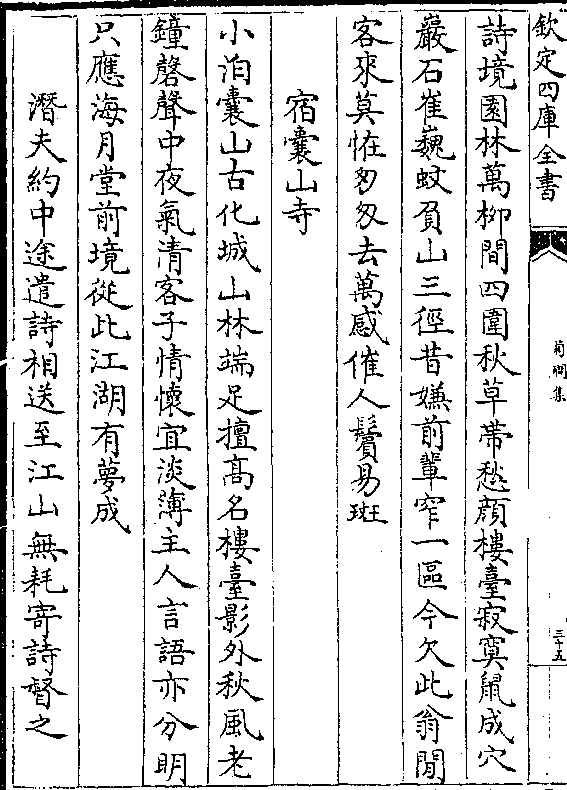 欽定四庫全書
菊磵集
三十五
詩境園林萬栁間四圍秋草帶愁顔樓臺寂寞鼠成穴
巖石崔巍蚊負山三徑昔嫌前輩窄一區今欠此翁閒
客來莫恠匆匆去萬感催人鬢易斑
宿囊山寺
小泊囊山古化城山林端足擅髙名樓臺影外秋風老
鐘磬聲中夜氣清客子情懷宜淡薄主人言語亦分明
只應海月堂前境從此江湖有夢成
潛夫約中途遣詩相送至江山無耗寄詩督之